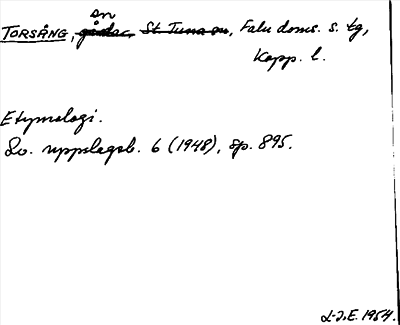 ön
TORSÅNG, gårdar, St. Tuna sn, Falu doms. s. tg,
Kopp. l.
Etymologi.
Sv. uppslagsb. 6 (1948), sp. 895.
L-J.E. 1954.